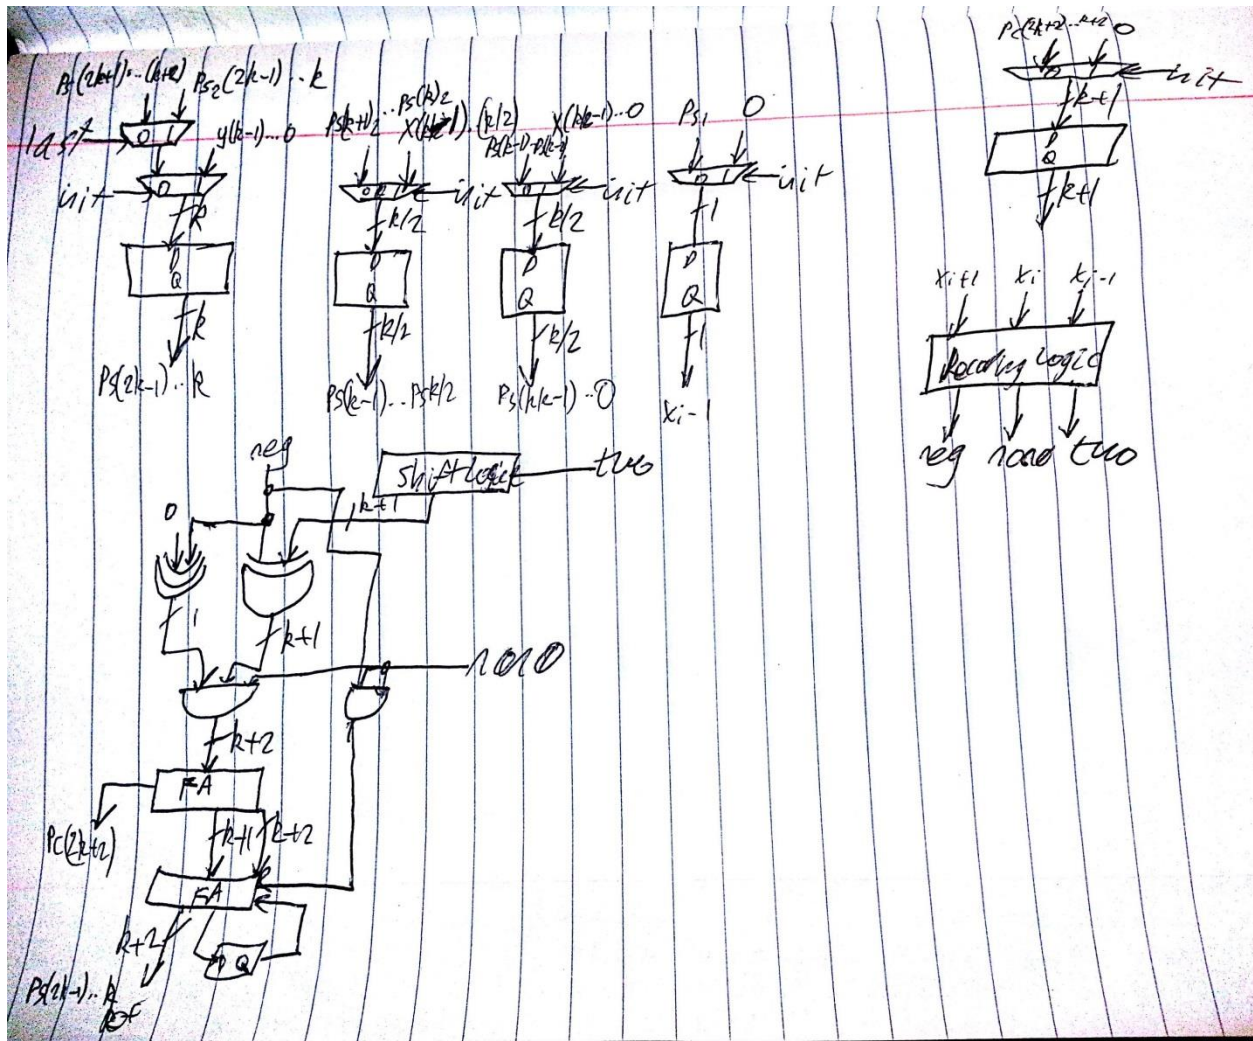 Ps(2k+1)...(k+2) Ps2(2k-1)..k
last
0 1
y(k-1)...0
init
0
k
D
Q
k
Ps(2k-1)..k
Ps(k+1)2...Ps(k)2
(k/2)
init
k/2
D
Q
k/2
Ps(k-1)..Psk/2
X(k/2-1)..0
0 1
init
k/2
D
Q
k/2
Ps1 0
0 1
init
1
D
Q
1
xi-1
Pc(2k+2)..k+2 0
init
k+1
D
Q
k+1
xi+1 xi xi-1
Recoding logic
neg nono two
neg
shift logick
two
k+1
0
1
k+1
nono
k+2
FA
Pc(2k+2)
k+1 k+2
FA
k+2
D Q
Ps(2k-1)..k